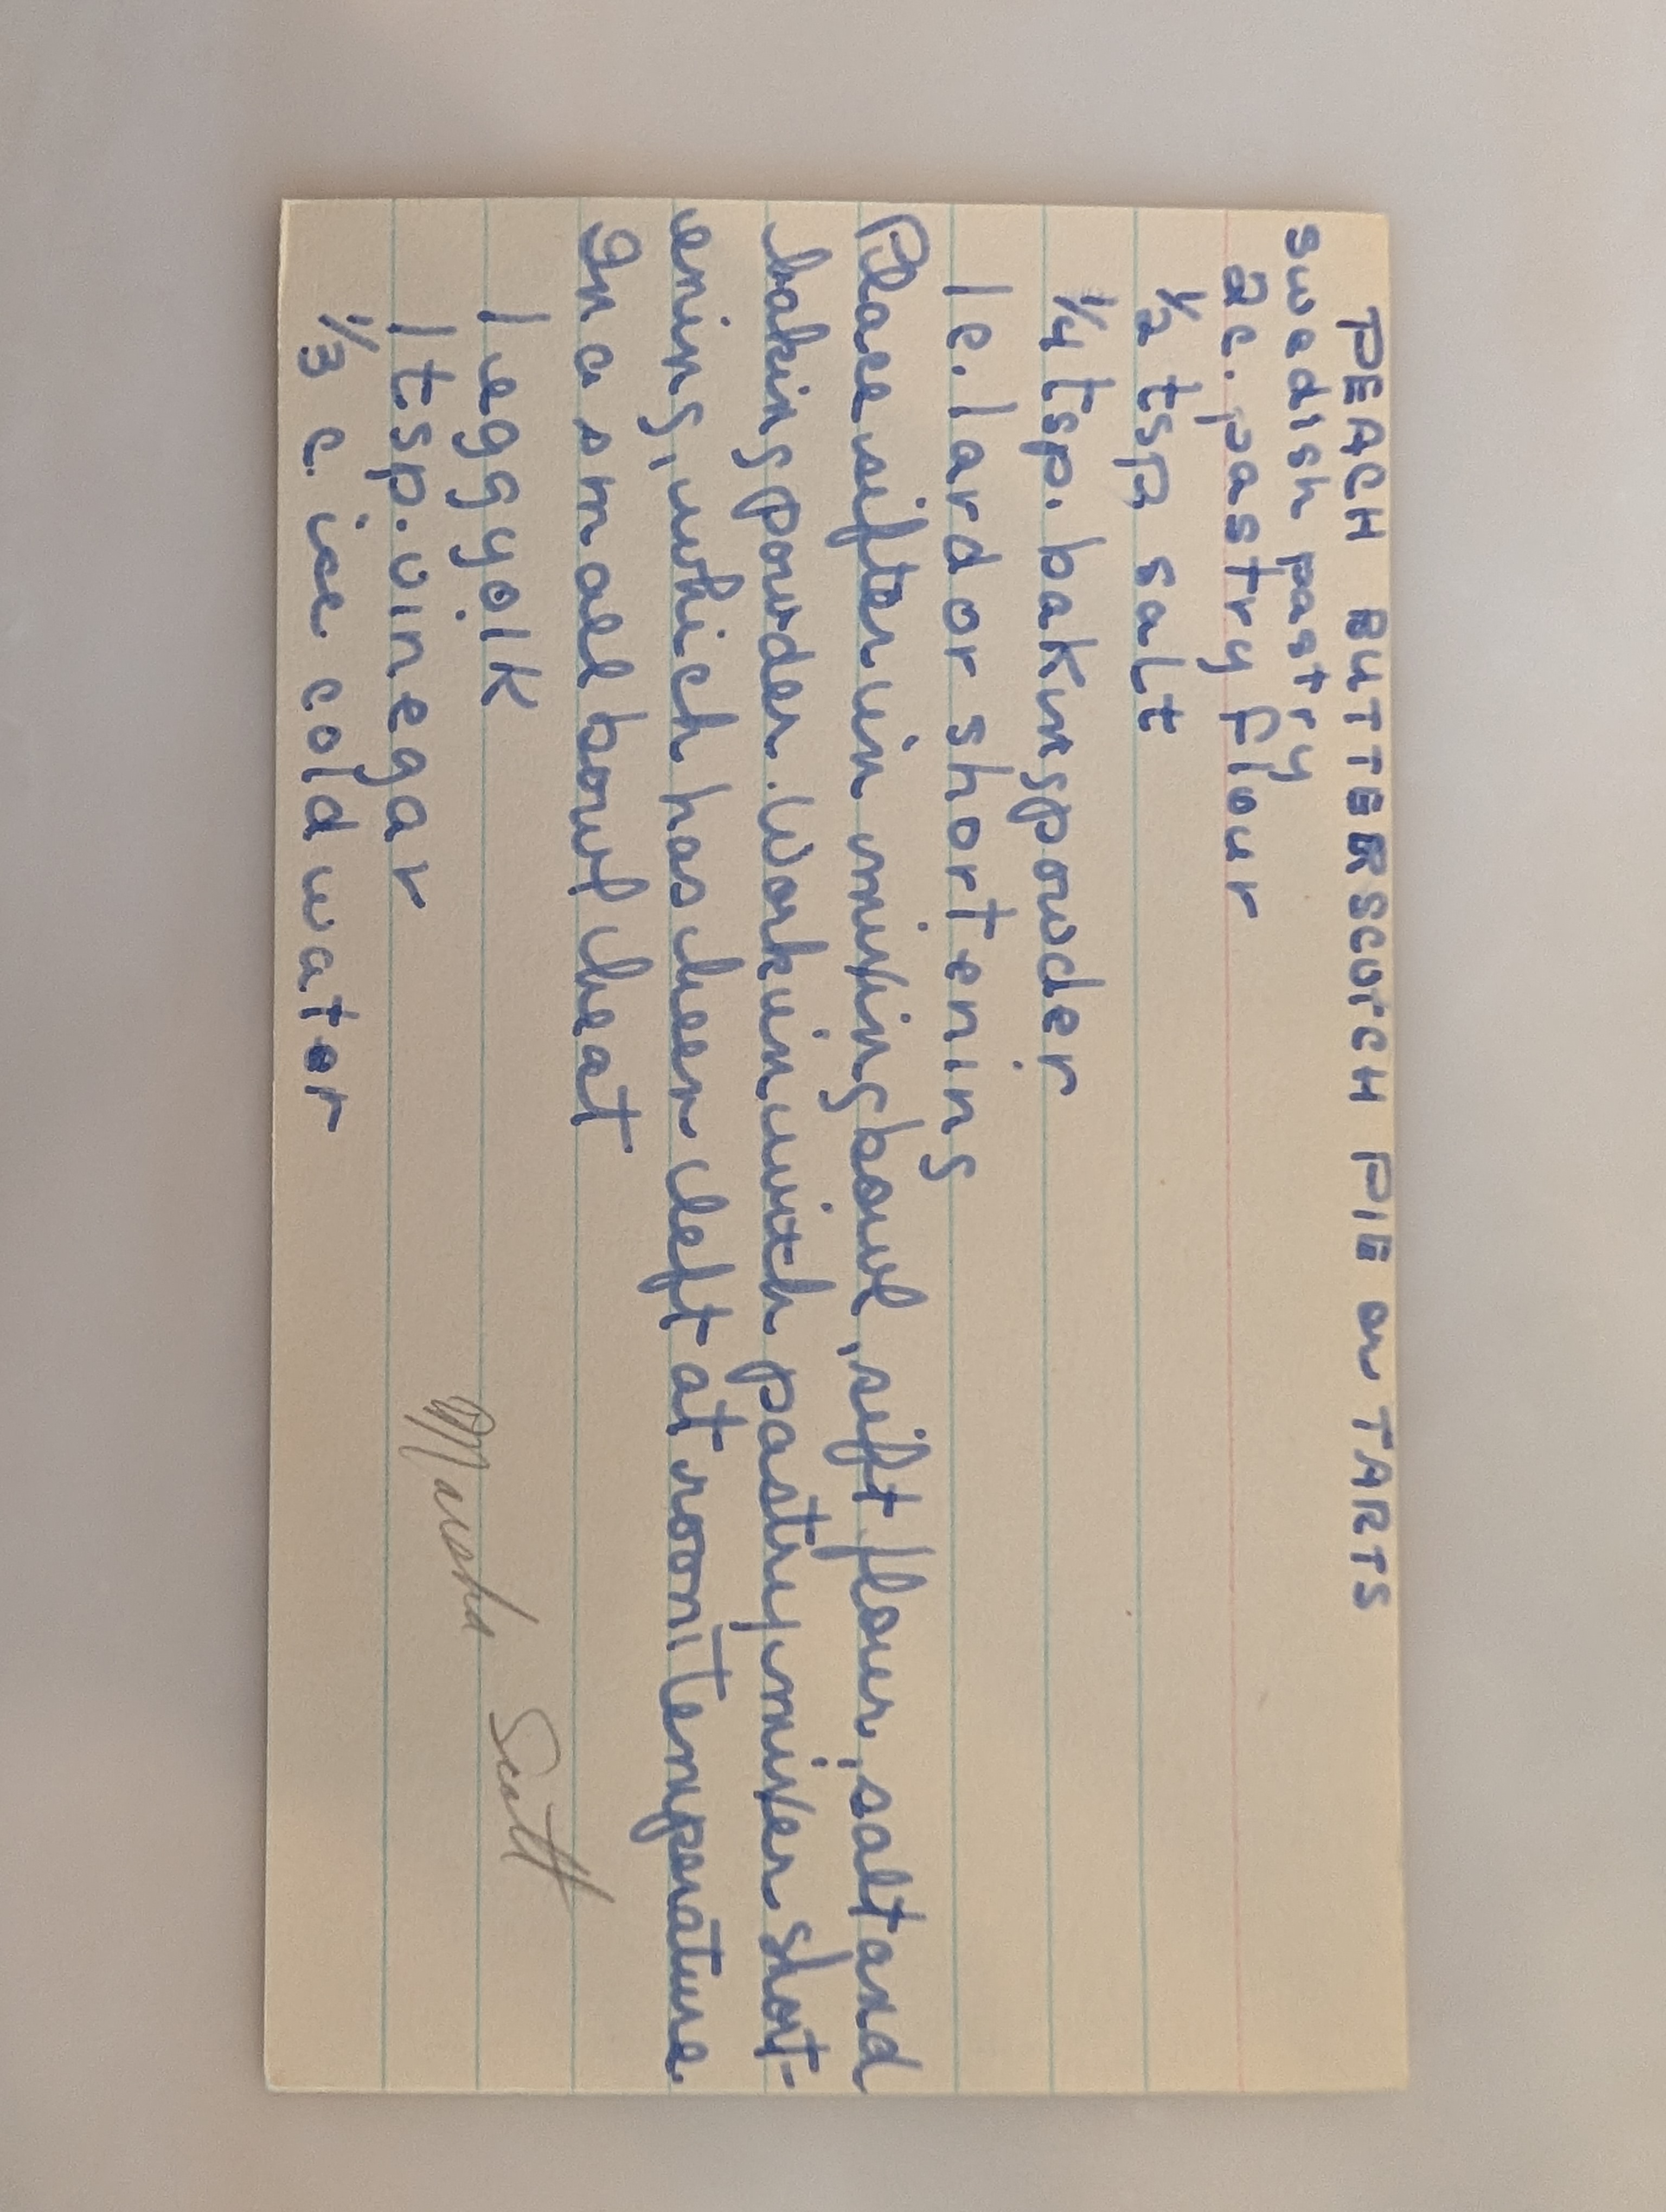 PEACH BUTTERSCOTCH PIE or TARTS
swedish pastry
2 c. pastry flour
1/2 tsp salt
1/4 tsp. baking powder
1 c. lard or shortening
Place sifter in mixing bowl, sift flour, salt and
baking powder. Work in with pastry mixer short-
ening, which has been left at room temperature
In a small bowl beat
1 egg yolk
1 tsp. vinegar
1/3 c. ice cold water
Marsha Scott